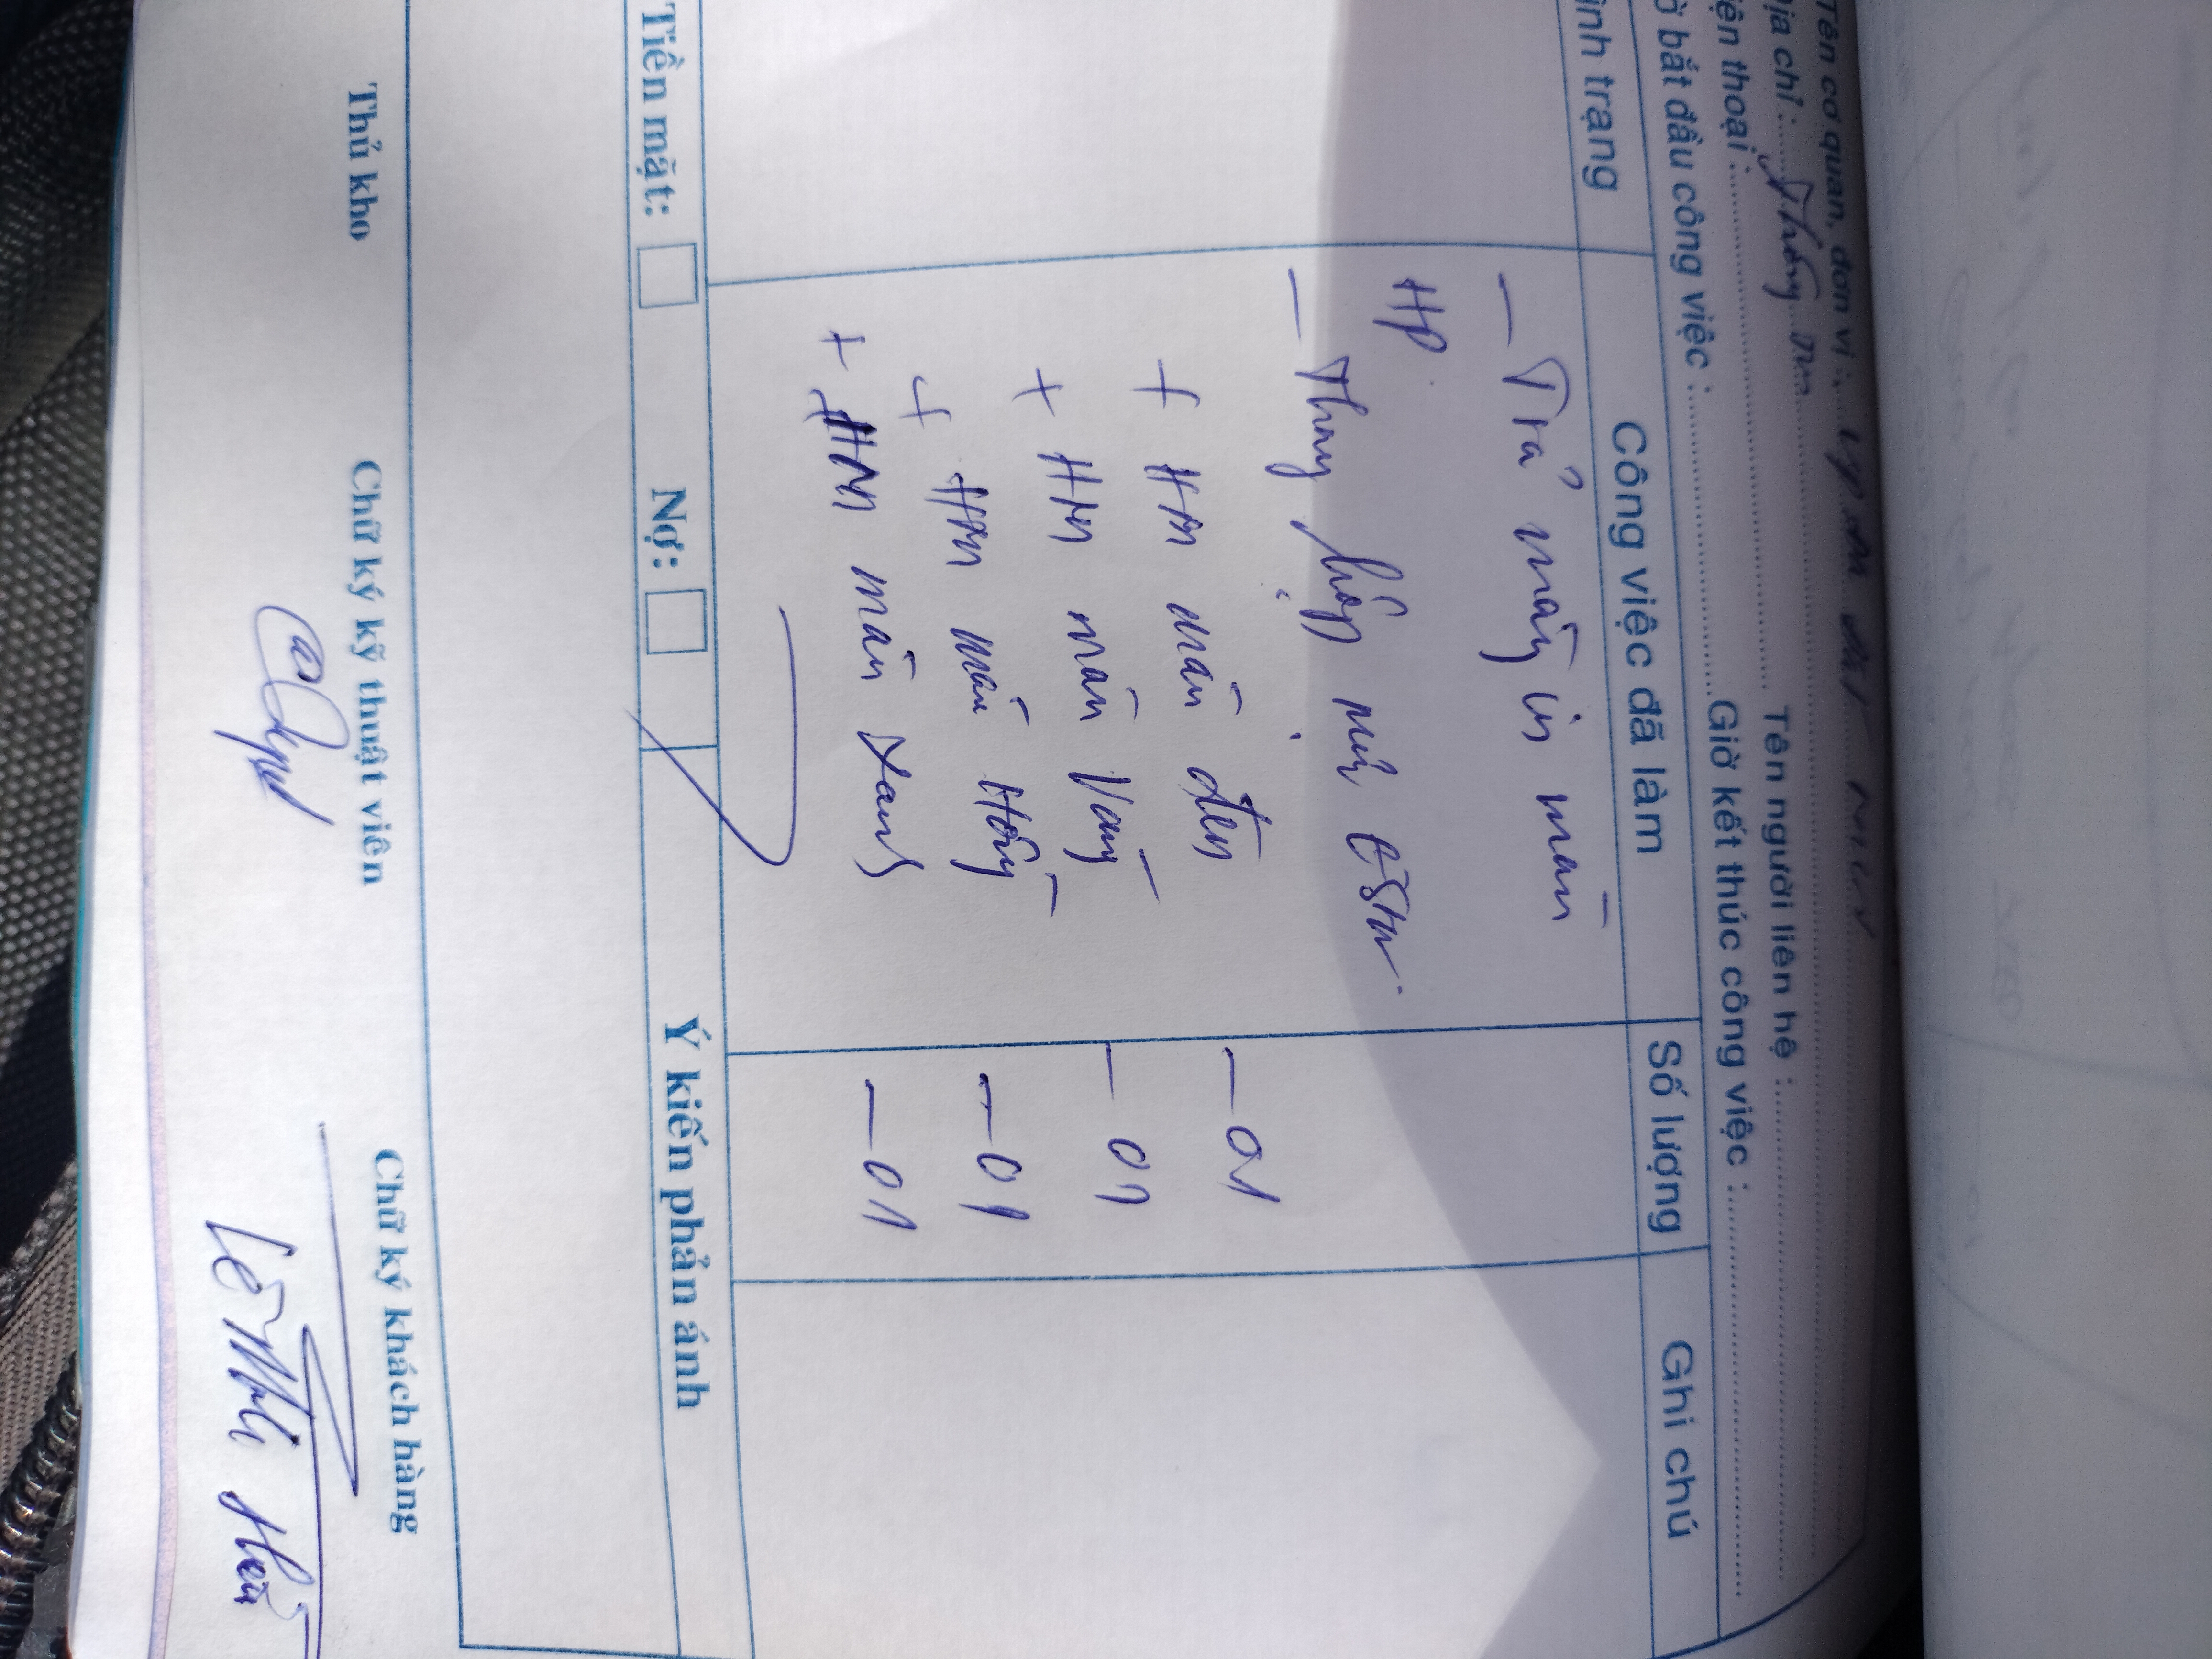 Tên cơ quan, đơn vị :
ịa chỉ :
iện thoại : Tên người liên hệ :
ờ bắt đầu công việc : Giờ kết thúc công việc :
ình trạng Công việc đã làm Số lượng Ghi chú
- Trả máy in màu
HP
- Thay hộp mực
+ HM màu đen - 01
+ HM màu Vàng - 01
+ HM màu Hồng - 01
+ HM màu xanh - 01
Tiền mặt: Nợ: Ý kiến phản ánh
Thủ kho Chữ ký kỹ thuật viên Chữ ký khách hàng
Lê